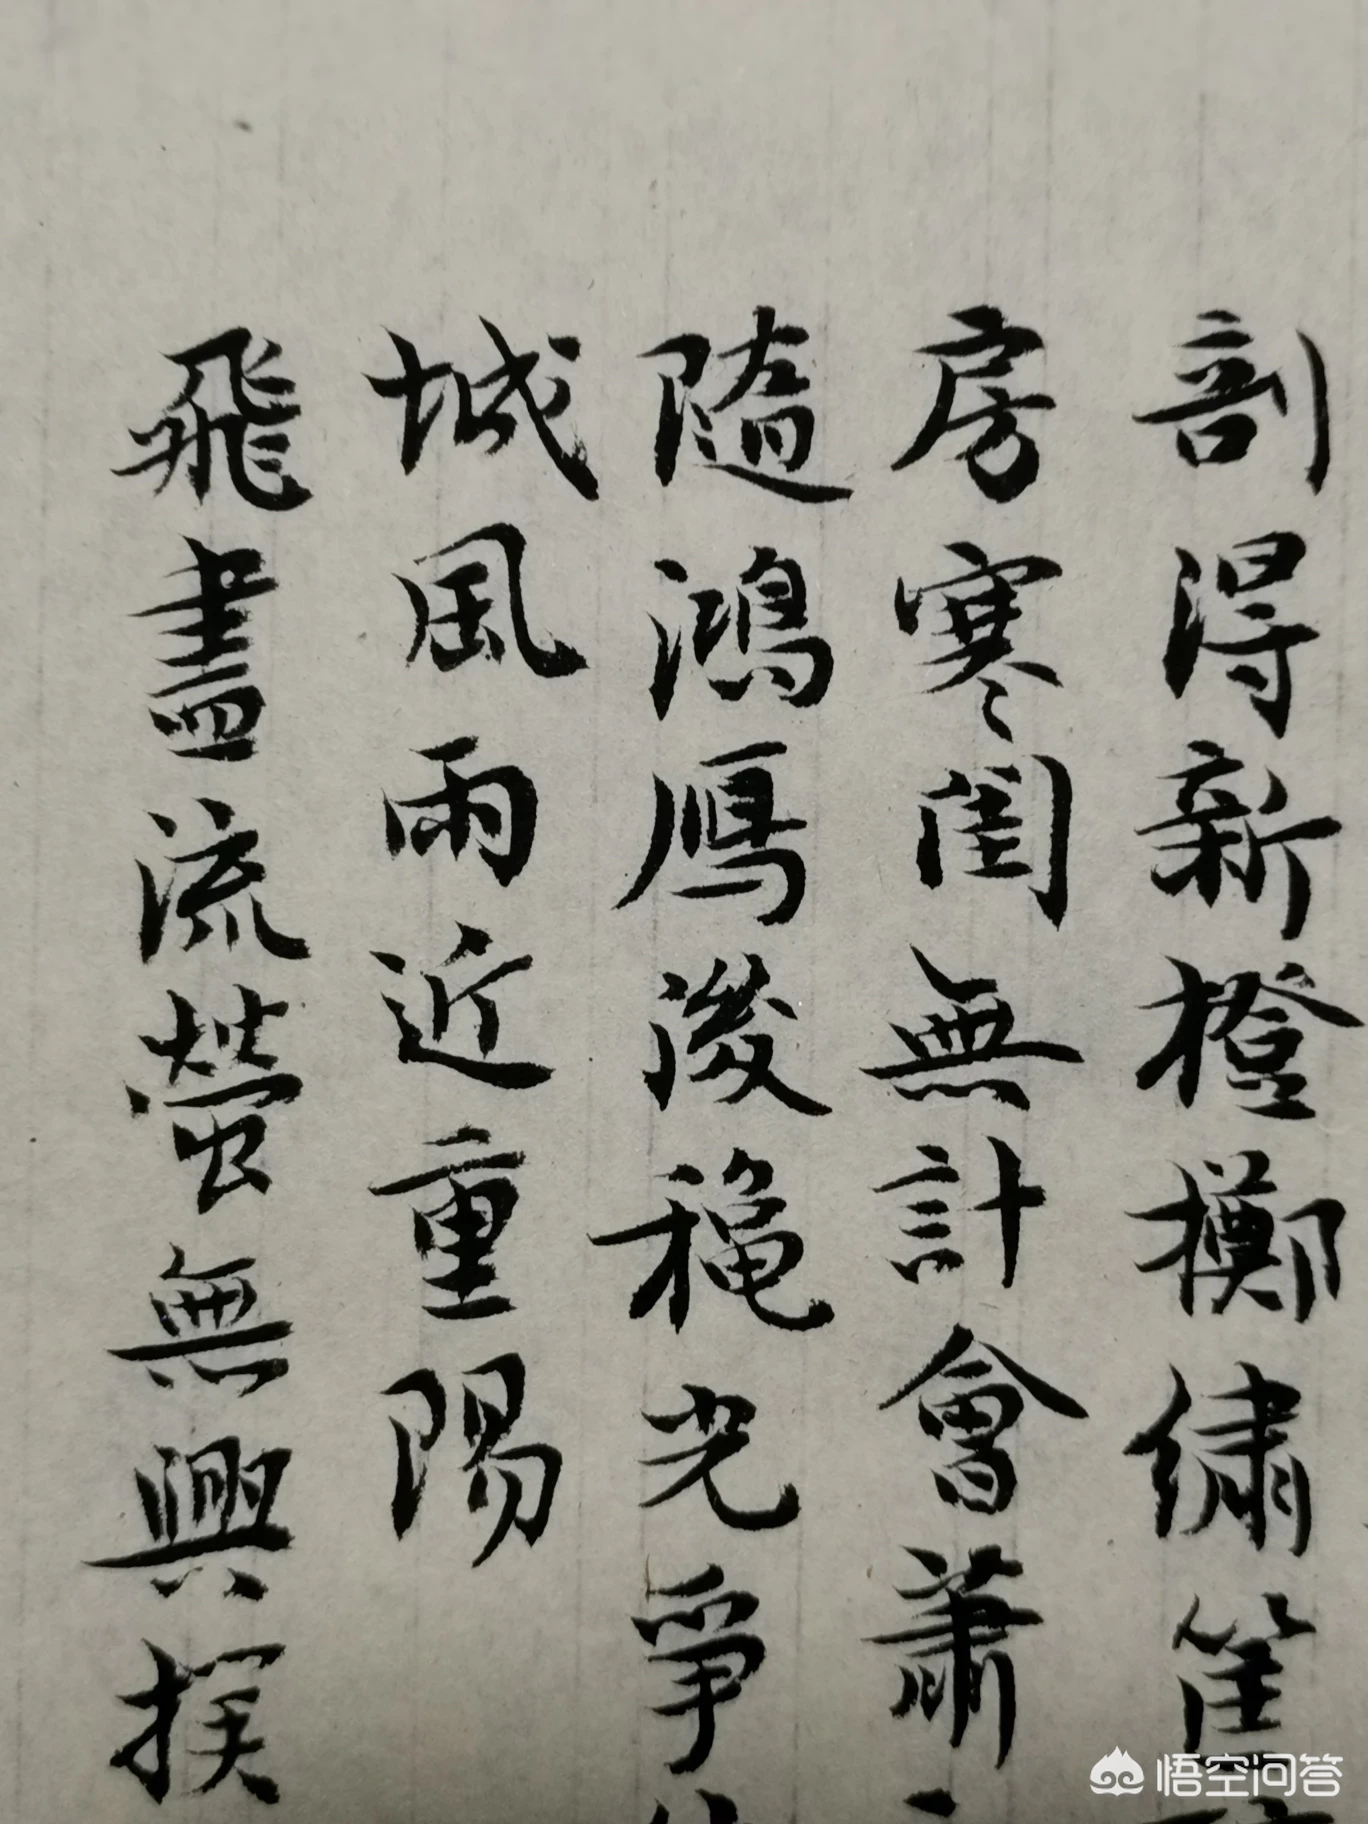 剖得新橙擲繡筐
房寒閨無計會蕭
隨鴻鴈後穐光爭
城風雨近重陽
飛盡流螢無興撲
悟空问答